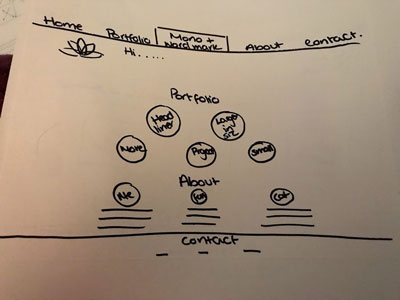 Home Portfolio Mono + Word mark About Contact.
Hi.....
Portfolio
Head liner Larger in size
More Project small
About
Me cat
Contact